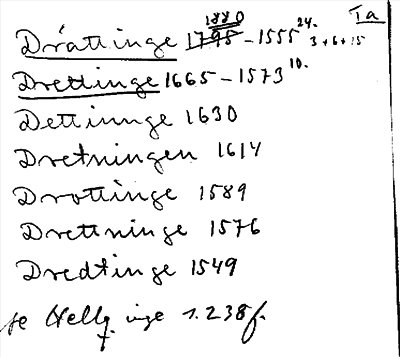 1880 Ta
Drättinge 1795 - 1555 24. 3+6+15
Drettinge 1665 - 1573 10.
Dettinnge 1630
Dretningen 1614
Drottinge 1589
Drettninge 1576
Dredtinge 1549
se Hellq. inge s. 238 f.